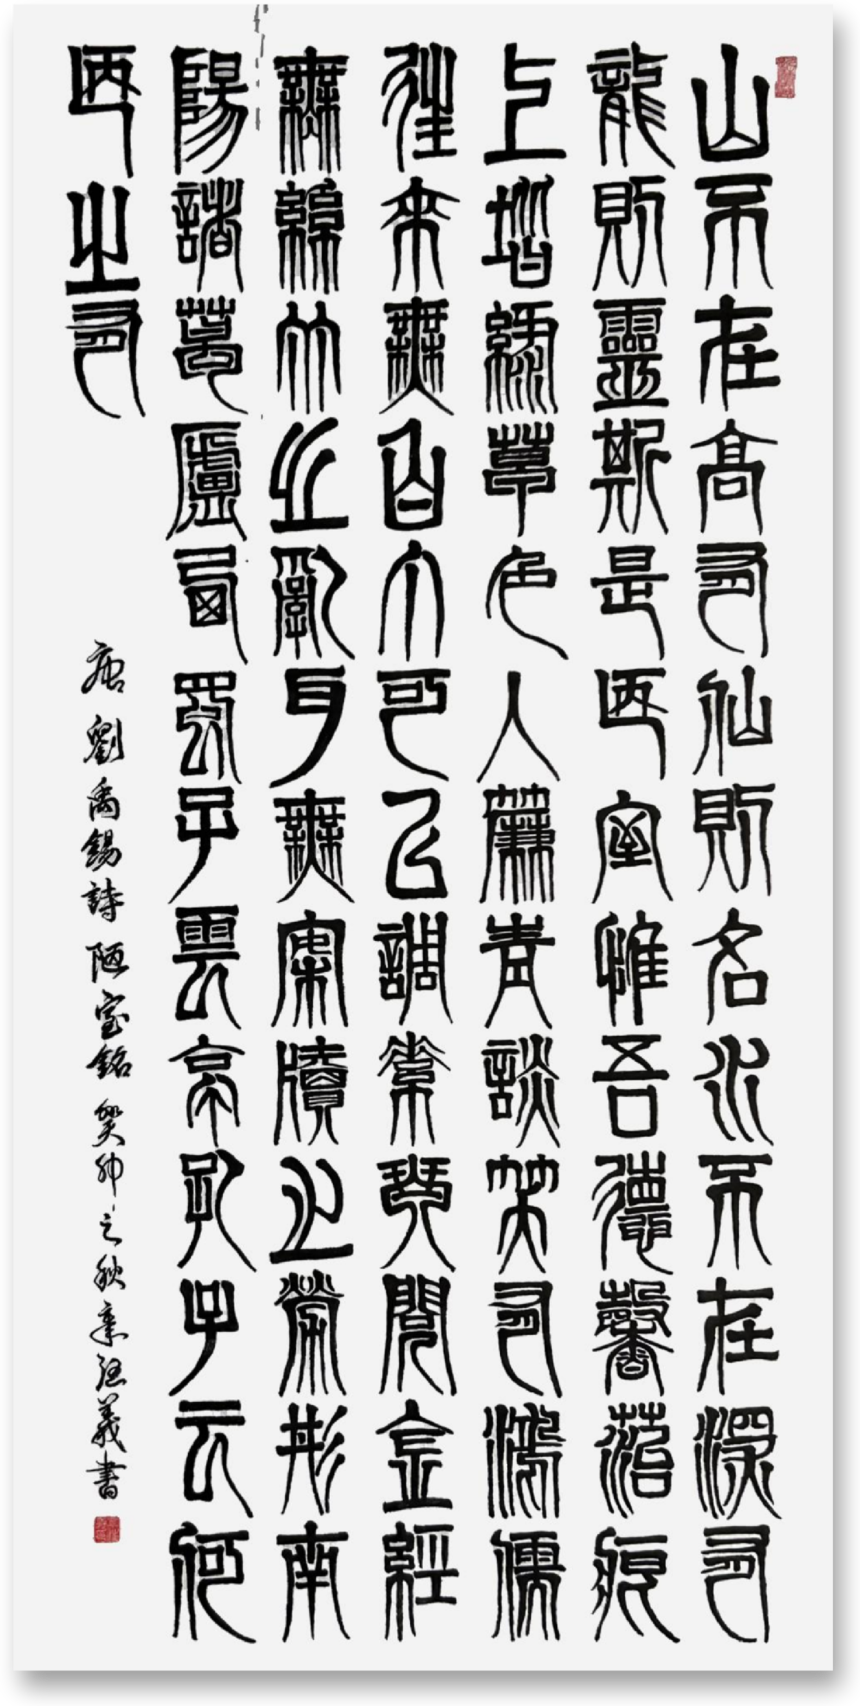 山不在高有仙則名水不在深有
龍則靈斯是陋室惟吾德馨苔痕
上堦綠草色入簾青談笑有鴻儒
往來無白丁可以調素琴閱金經
無絲竹之亂耳無案牘之勞形南
陽諸葛廬西蜀子雲亭孔子云何
陋之有
唐劉禹錫詩陋室銘癸卯之秋義書